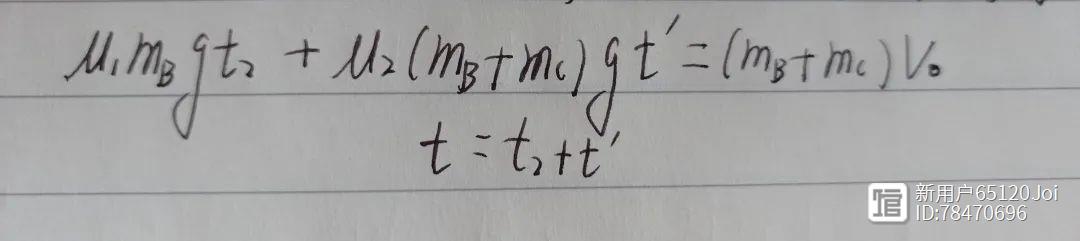 μ₁m_B g t₂ + μ₂(m_B+m_C)g t′=(m_B+m_C)V₀
t=t₂+t′
馆
新用户65120Joi
ID:78470696